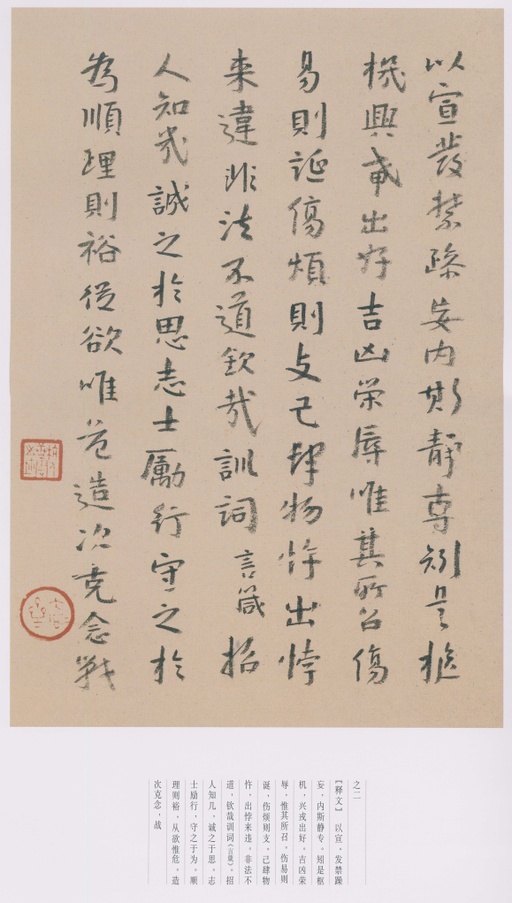 以宣發禁躁妄內斯靜專矧是樞
機興戎出好吉凶榮辱唯其所召傷
易則誕傷煩則支己肆物忤出悖
來違非法不道欽哉訓詞言箴招
人知幾誠之於思志士厲行守之於
為順理則裕從欲唯危造次克念戰
之二
【释文】 以宣,发禁躁
妄,内斯静专。矧是枢
机,兴戎出好,吉凶荣
辱,惟其所召。伤易则
诞,伤烦则支。己肆物
忤,出悖来违。非法不
道,钦哉训词(言箴)。招
人知几,诚之于思,志
士励行,守之于为。顺
理则裕,从欲惟危。造
次克念,战